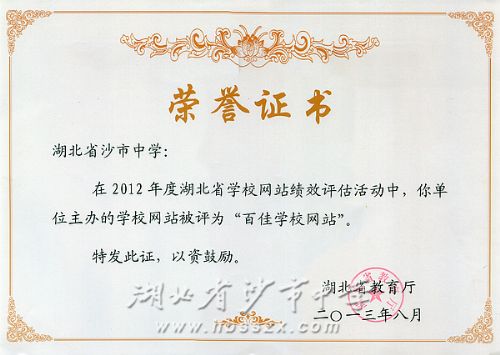 荣誉证书
湖北省沙市中学：
在2012年度湖北省学校网站绩效评估活动中，你单
位主办的学校网站被评为“百佳学校网站”。
特发此证，以资鼓励。
湖北省教育厅
二〇一三年八月
湖北省沙市中学
www.hbsszx.com